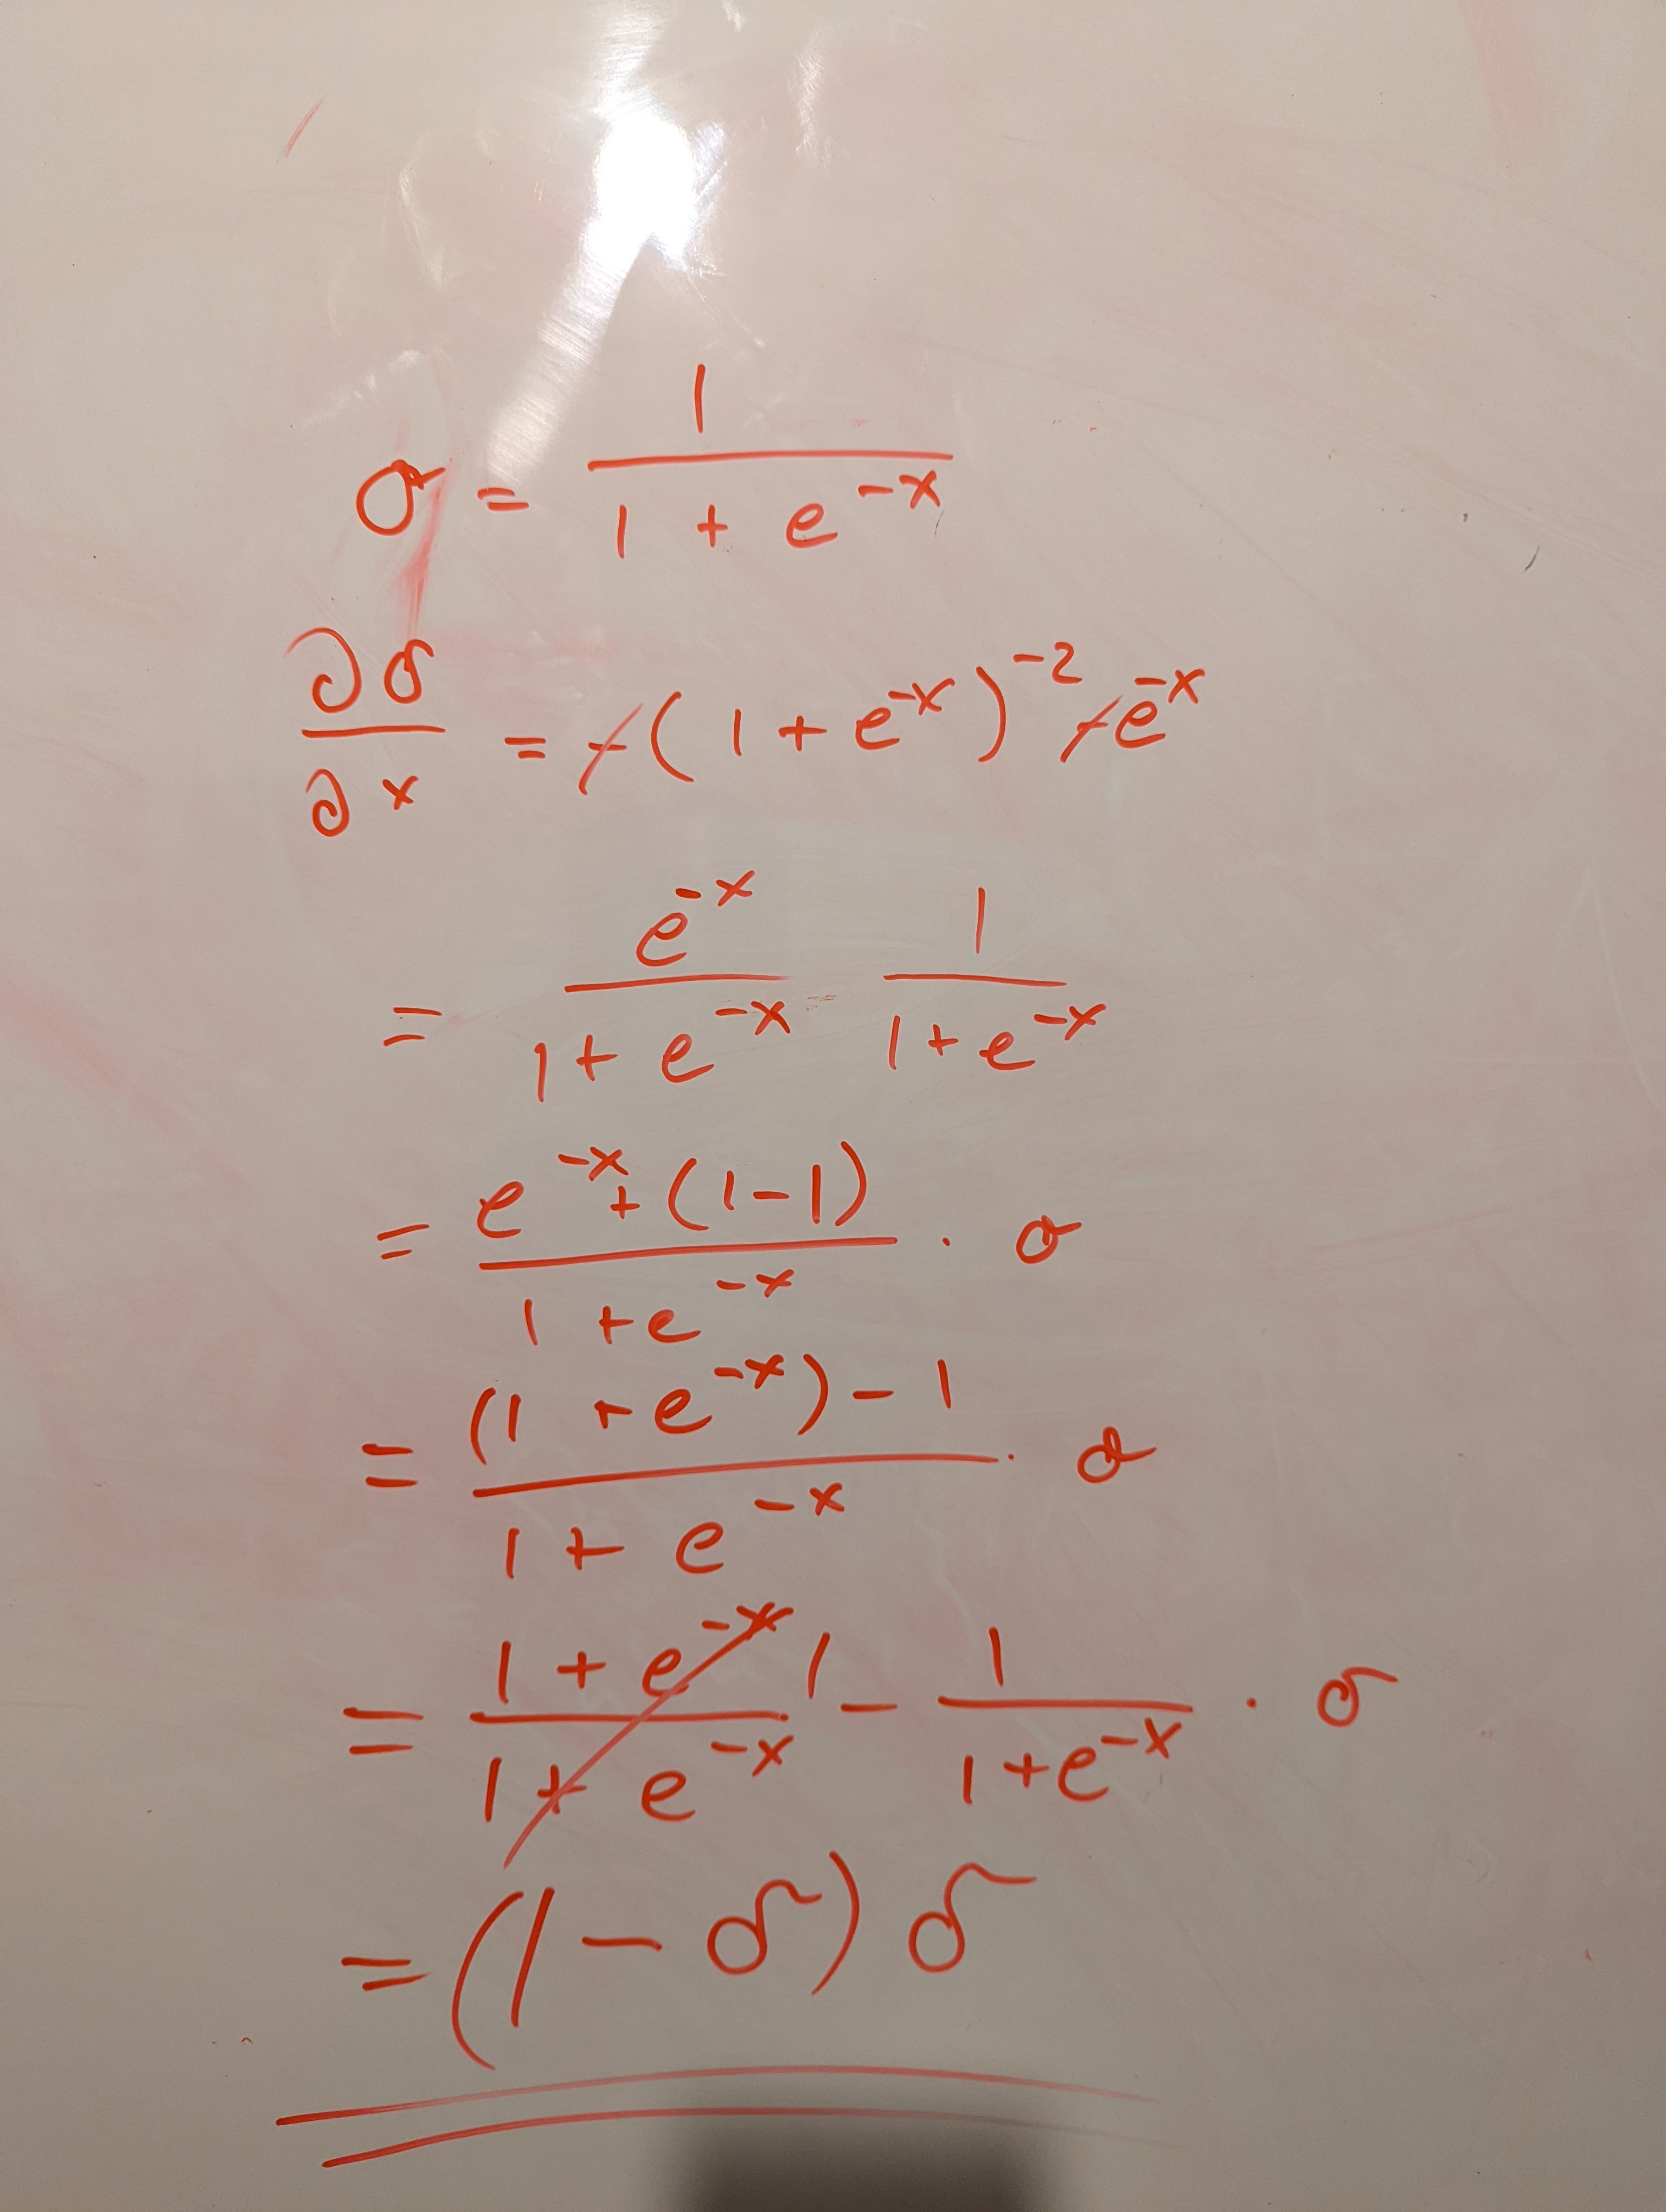 σ = 1 / (1 + e^{-x})
∂σ/∂x = -(1 + e^{-x})^{-2} -e^{-x}
= e^{-x} / (1 + e^{-x}) 1 / (1 + e^{-x})
= (e^{-x} + (1-1)) / (1 + e^{-x}) · σ
= ((1 + e^{-x}) - 1) / (1 + e^{-x}) · σ
= (1 + e^{-x}) / (1 + e^{-x}) 1 - 1 / (1 + e^{-x}) · σ
= (1 - σ) σ